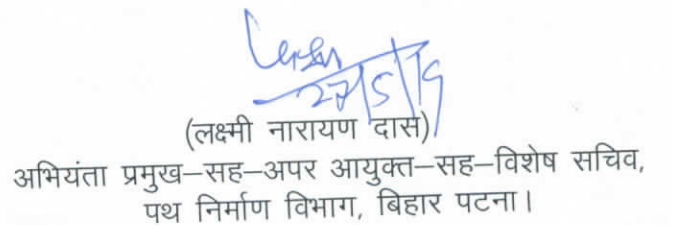 27/5/19
(लक्ष्मी नारायण दास)
अभियंता प्रमुख–सह–अपर आयुक्त–सह–विशेष सचिव,
पथ निर्माण विभाग, बिहार पटना।